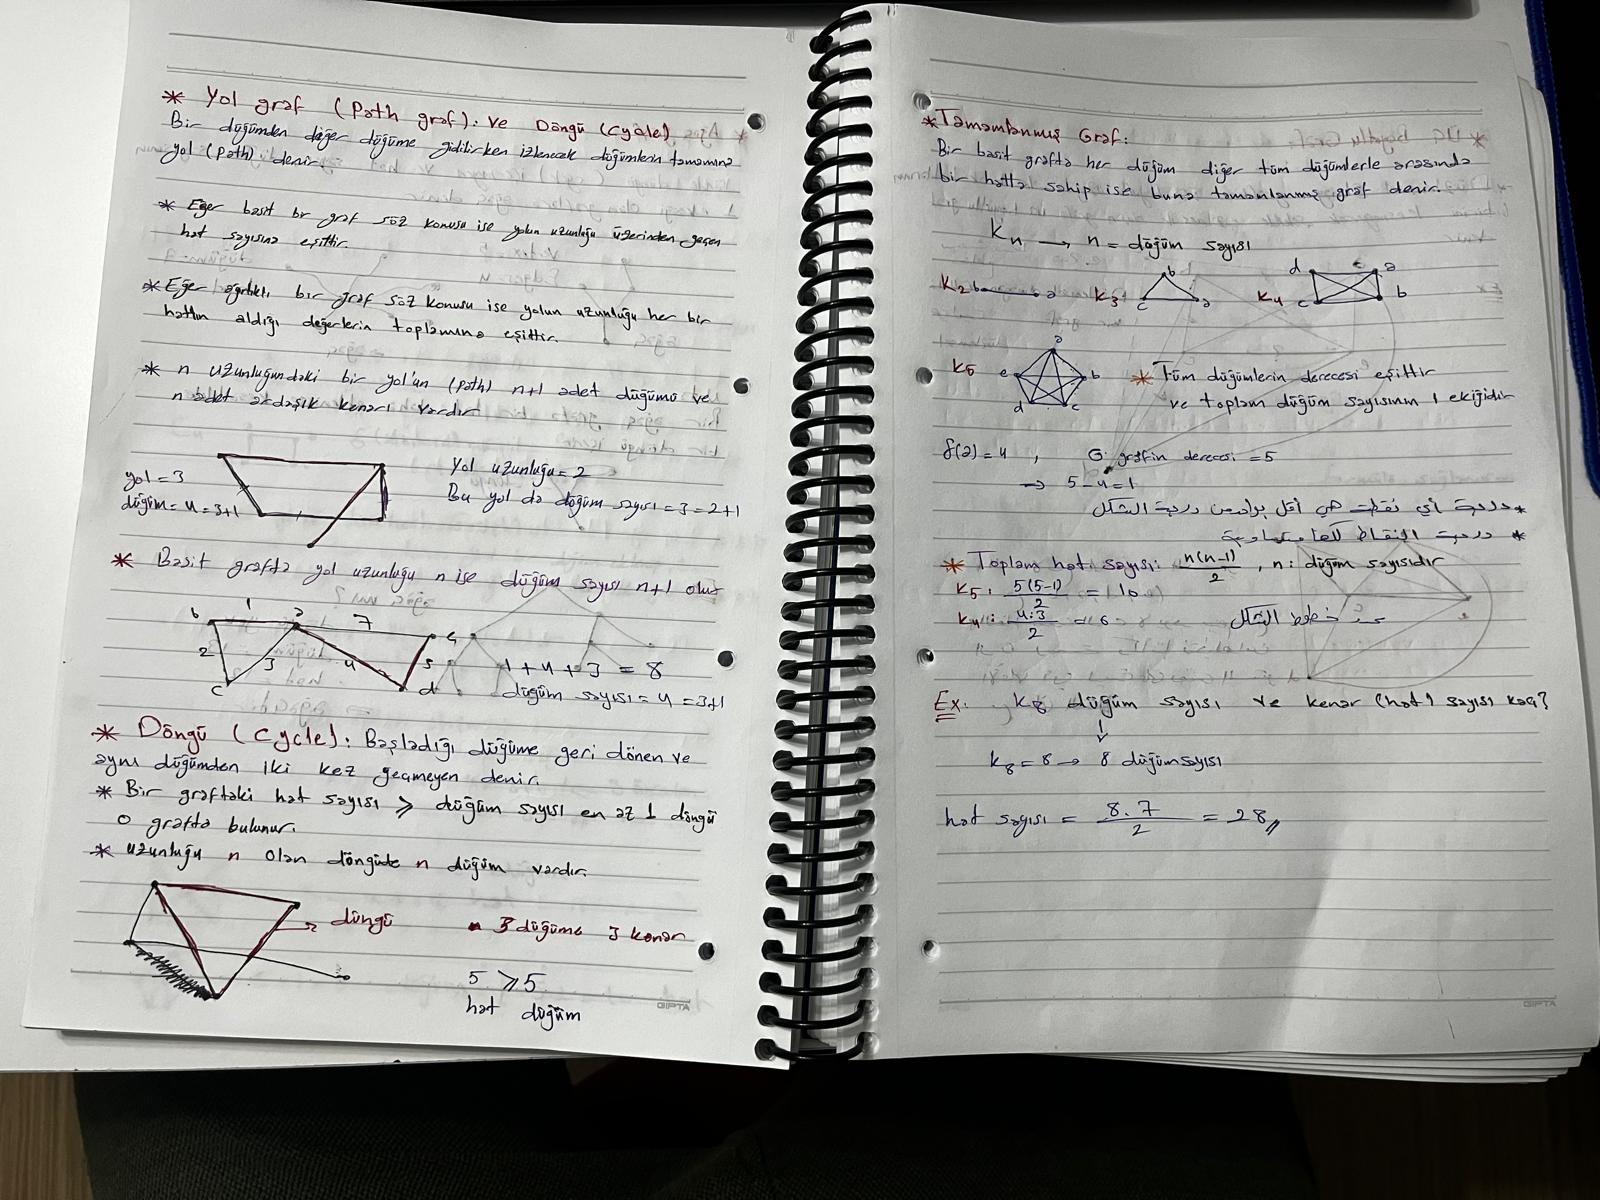 * Yol graf (Path graf). ve Döngü (Cycle)
Bir düğümden diğer düğüme gidilirken izlenecek düğümlerin tamamına
yol (Path) denir.
* Eğer basit bir graf söz konusu ise yolun uzunluğu üzerinden geçen
hat sayısına eşittir.
* Eğer ağırlıklı bir graf söz konusu ise yolun uzunluğu her bir
hattın aldığı değerlerin toplamına eşittir.
* n uzunluğundaki bir yol'un (path) n+1 adet düğümü ve
n adet ardaşık kenarı vardır.
yol = 3
düğüm = 4 = 3+1
Yol uzunluğu = 2
Bu yol da düğüm sayısı = 3 = 2+1
* Basit grafta yol uzunluğu n ise düğüm sayısı n+1 olur
b 1 a 7 e
2 3 4 5
c d
1 + 4 + 3 = 8
düğüm sayısı = 4 = 3+1
* Döngü (Cycle): Başladığı düğüme geri dönen ve
aynı düğümden iki kez geçmeyen denir.
* Bir graftaki hat sayısı ⩾ düğüm sayısı en az 1 döngü
o grafta bulunur.
* uzunluğu n olan döngüde n düğüm vardır.
döngü
3 düğüme 3 kenar
5 ⩾ 5
hat düğüm
GIPTA
* Tamamlanmış Graf:
Bir basit grafta her düğüm diğer tüm düğümlerle arasında
bir hatta sahip ise buna tamamlanmış graf denir.
Kn → n = düğüm sayısı
K2 b a K3 b c a K4 d a c b
K5 a e b d c
* Tüm düğümlerin derecesi eşittir
ve toplam düğüm sayısının 1 eksiğidir
f(a) = 4 , G grafın derecesi = 5
→ 5 - 4 = 1
* درجة أي نقطة هي أقل بواحد من درجة الشكل
* درجة النقاط كلها متساوية
* Toplam hat sayısı: n(n-1)/2 , n: düğüm sayısıdır
K5: 5(5-1)/2 = 10
K4: 4.3/2 = 6 عدد خطوط الشكل
Ex: K8 düğüm sayısı ve kenar (hat) sayısı kaç?
↓
K8 = 8 → 8 düğüm sayısı
hat sayısı = 8.7/2 = 28
GIPTA